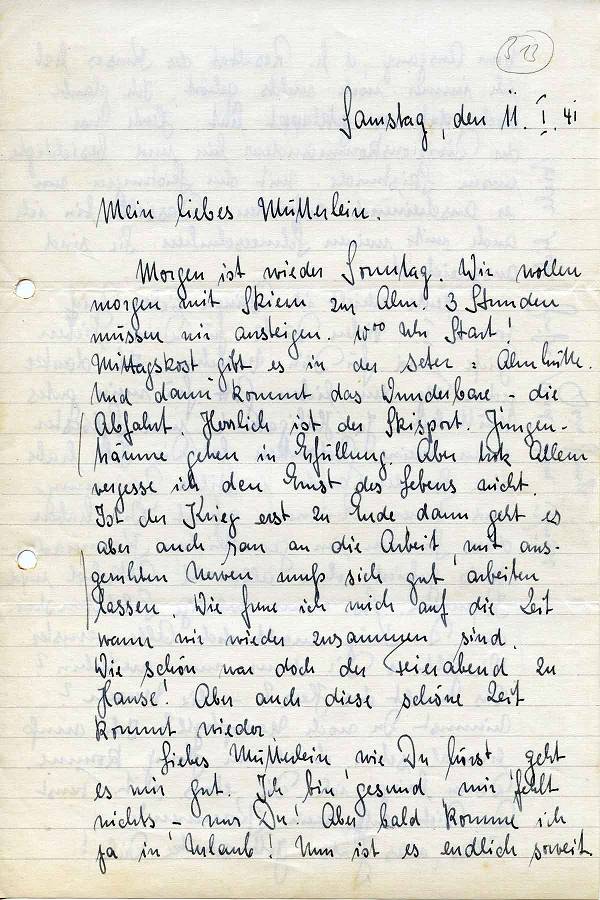 B 13
Samstag, den 11. I. 41
Mein liebes Mutterlein.
Morgen ist wieder Sonntag. Wir wollen
morgen mit Skiern zur Alm. 3 Stunden
müssen wir ansteigen. 10⁰⁰ Uhr Start!
Mittagskost gibt es in der Seter = Almhütte.
Und dann kommt das Wunderbare - die
Abfahrt. Herrlich ist der Skisport. Jungen-
träume gehen in Erfüllung. Aber trotz Allem
vergesse ich den Ernst des Lebens nicht.
Ist der Krieg erst zu Ende dann geht es
aber auch ran an die Arbeit, mit aus-
geruhten Nerven muß sich gut arbeiten
lassen. Wie freue ich mich auf die Zeit
wann wir wieder zusammen sind.
Wie schön war doch der Feierabend zu
Hause! Aber auch diese schöne Zeit
kommt wieder.
Liebes Mutterlein, wie Du hörst geht
es mir gut. Ich bin gesund, mir fehlt
nichts - nur Du! Aber bald komme ich
ja in Urlaub! Nun ist es endlich soweit